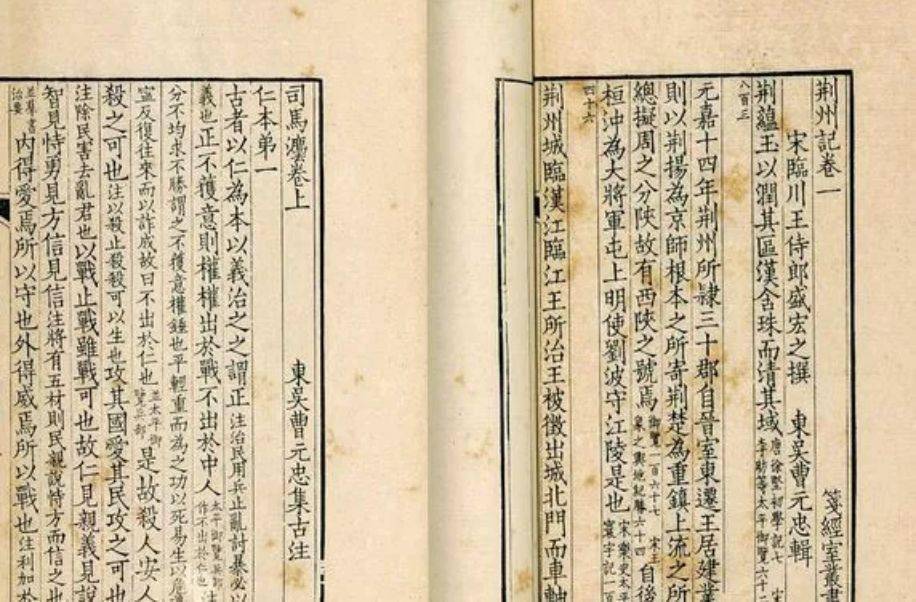 荆州記卷一 箋經室叢書
宋臨川王侍郎盛宏之撰 東吳曹元忠輯
荆蘊玉以潤其區漢含珠而清其域 唐徐堅初學記七 李昉等太平御覽六十二
八百三
元嘉十四年荆州所隸三十郡自晉室東遷王居建業
則以荆揚為京師根本之所寄荆楚為重鎮上流之所
總擬周之分陜故有西陜之號焉 御覽一百六十七 宋王象之輿地紀勝六十四 自後
桓沖為大將軍屯上明使劉波守江陵是也 宋樂史太平寰宇記一百
四十六
荆州城臨漢江臨江王所治王被徵出城北門而車軸
司馬灋卷上
仁本弟一 東吳曹元忠集古注
古者以仁為本以義治之之謂正 注治民用兵平亂討暴必以
義也 正不獲意則權權出於戰不出於中人 太平御覽兵部作不出於仁也
分不均求不勝謂之不獲意權錘也平輕重而為之功以死易生以危
宣反復往來而以詐成故曰不出於仁也 並太平御覽兵部 是故殺人安人
殺之可也 注以殺止殺殺可以生也 攻其國愛其民攻之可也
注除民害去亂君也 以戰止戰雖戰可也故仁見親義見說
智見恃勇見方信見信 注將有五材則民親說恃方而信之也
並羣書治要 內得愛焉所以守也外得威焉所以戰也 注利加於